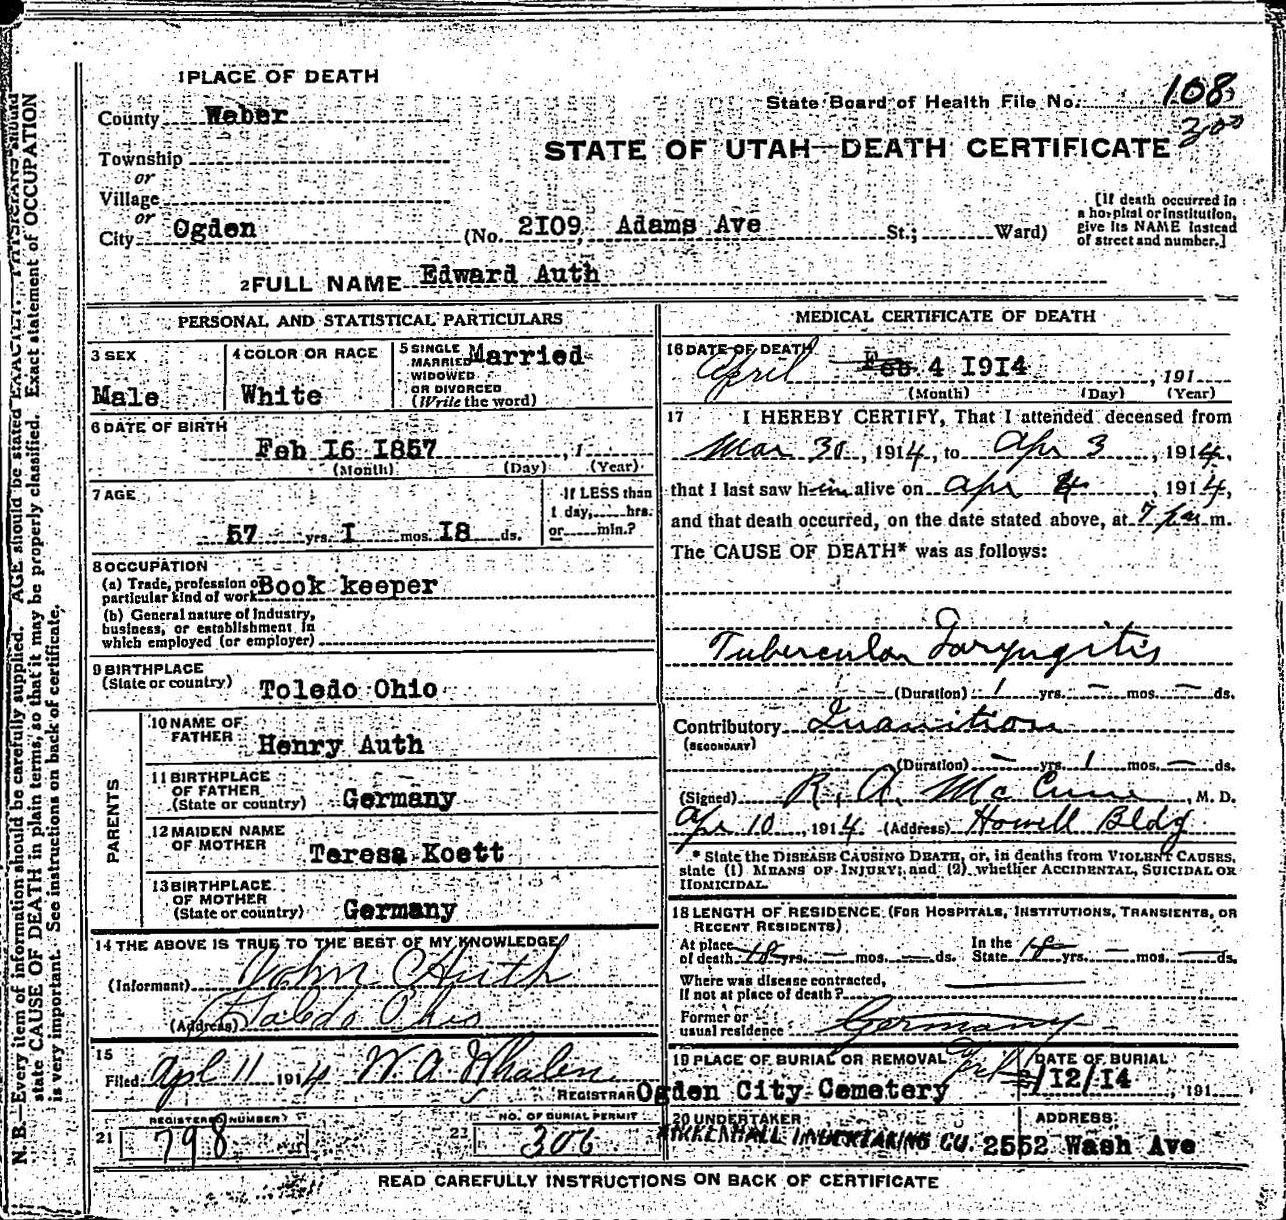 1 PLACE OF DEATH
State Board of Health File No. 108
300
County Weber
STATE OF UTAH—DEATH CERTIFICATE
Township
or
Village
or
City Ogden (No. 2I09, Adams Ave St.; Ward)
[If death occurred in a hospital or institution, give its NAME instead of street and number.]
2 FULL NAME Edward Auth
PERSONAL AND STATISTICAL PARTICULARS
3 SEX
Male
4 COLOR OR RACE
White
5 SINGLE
MARRIED
WIDOWED
OR DIVORCED
(Write the word)
Married
6 DATE OF BIRTH
Feb I6 I857, 1
(Month) (Day) (Year)
7 AGE
57 yrs. I mos. I8 ds.
If LESS than
1 day, hrs.
or min.?
8 OCCUPATION
(a) Trade, profession or
particular kind of work Book keeper
(b) General nature of Industry,
business, or establishment in
which employed (or employer)
9 BIRTHPLACE
(State or country) Toledo Ohio
PARENTS
10 NAME OF
FATHER Henry Auth
11 BIRTHPLACE
OF FATHER
(State or country) Germany
12 MAIDEN NAME
OF MOTHER Teresa Koett
13 BIRTHPLACE
OF MOTHER
(State or country) Germany
14 THE ABOVE IS TRUE TO THE BEST OF MY KNOWLEDGE
(Informant) John C Huth
(Address) Toledo Ohio
15
Filed Apl 11 1914 W. A. Whalen
REGISTRAR
REGISTERED NUMBER
21 798
NO. OF BURIAL PERMIT
22 306
MEDICAL CERTIFICATE OF DEATH
16 DATE OF DEATH
April Feb 4 I9I4, 191
(Month) (Day) (Year)
17 I HEREBY CERTIFY, That I attended deceased from
Mar 30, 1914, to Apr 3, 1914,
that I last saw him alive on Apr 4, 1914,
and that death occurred, on the date stated above, at 7 pm m.
The CAUSE OF DEATH* was as follows:
Tubercular Laryngitis
(Duration) 1 yrs. – mos. – ds.
Contributory Inanition
(SECONDARY)
(Duration) – yrs. 1 mos. – ds.
(Signed) R. A. McCune, M. D.
Apr 10, 1914 (Address) Howell Bldg.
* State the DISEASE CAUSING DEATH, or, in deaths from VIOLENT CAUSES,
state (1) MEANS OF INJURY; and (2) whether ACCIDENTAL, SUICIDAL OR
HOMICIDAL.
18 LENGTH OF RESIDENCE (FOR HOSPITALS, INSTITUTIONS, TRANSIENTS, OR
RECENT RESIDENTS)
At place
of death 18 yrs. – mos. – ds.
In the
State 18 yrs. – mos. – ds.
Where was disease contracted,
If not at place of death?
Former or
usual residence Germany
19 PLACE OF BURIAL OR REMOVAL
Ogden City Cemetery
DATE OF BURIAL
/I2/I4, 191
20 UNDERTAKER
KIRKENDALL UNDERTAKING CO.
ADDRESS
2552 Wash Ave
READ CAREFULLY INSTRUCTIONS ON BACK OF CERTIFICATE
N. B.—Every item of information should be carefully supplied. AGE should be stated EXACTLY. PHYSICIANS should
state CAUSE OF DEATH in plain terms, so that it may be properly classified. Exact statement of OCCUPATION
is very important. See instructions on back of certificate.